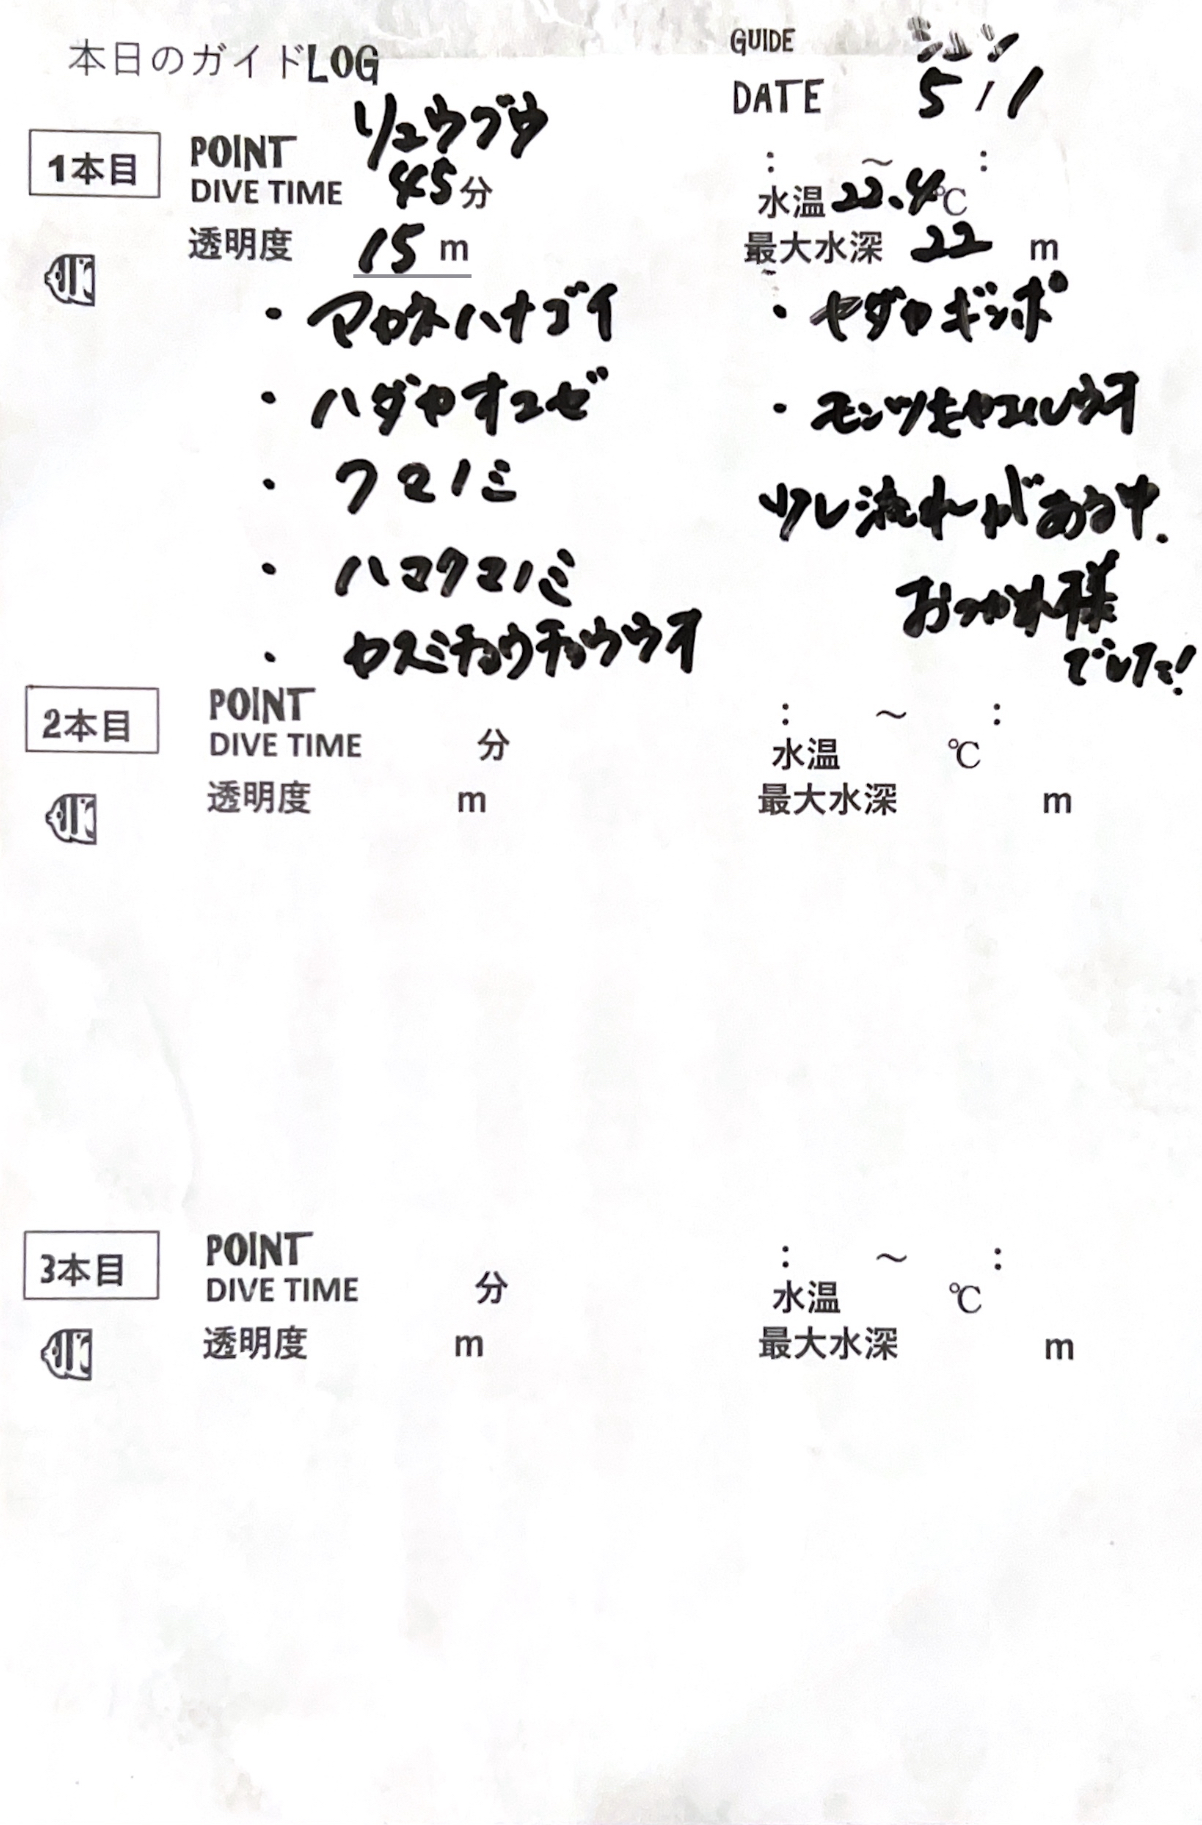 本日のガイドLOG
GUIDE シュン
DATE 5/1
1本目
POINT リュウグウ
: ～ :
DIVE TIME 45分
水温 22.4℃
透明度 15 m
最大水深 22 m
・カシワハナゴイ
・ハダカオコゼ
・クマノミ
・ハマクマノミ
・ヤスミチョウチョウウオ
・ヤダヤギンポ
・モンツキカエルウオ
少し流れがある中、
おつかれ様
でした!
2本目
POINT
: ～ :
DIVE TIME 分
水温 ℃
透明度 m
最大水深 m
3本目
POINT
: ～ :
DIVE TIME 分
水温 ℃
透明度 m
最大水深 m